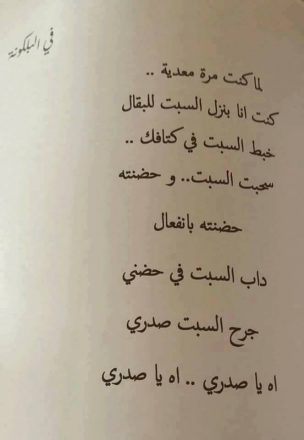 في البلكونة
لما كنت مرة معدية ..
كنت انا بنزل السبت للبقال
خبط السبت في كتافك ..
سحبت السبت.. و حضنته
حضنته بانفعال
داب السبت في حضني
جرح السبت صدري
اه يا صدري .. اه يا صدري